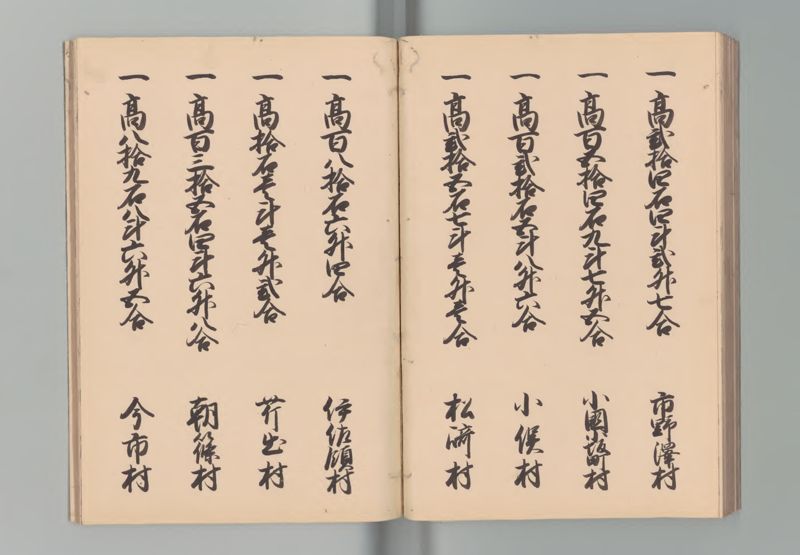 一 高弐拾四石四斗弐升七合 市野澤村
一 高百五拾四石九斗七升五合 小國町村
一 高百弐拾石五斗八升六合 小俣村
一 高弐拾五石七斗壱升壱合 松崎村
一 高百八拾石六升四合 伊佐領村
一 高拾石壱斗壱升弐合 芹出村
一 高百三拾五石四斗六升八合 朝篠村
一 高八拾九石八斗六升五合 今市村